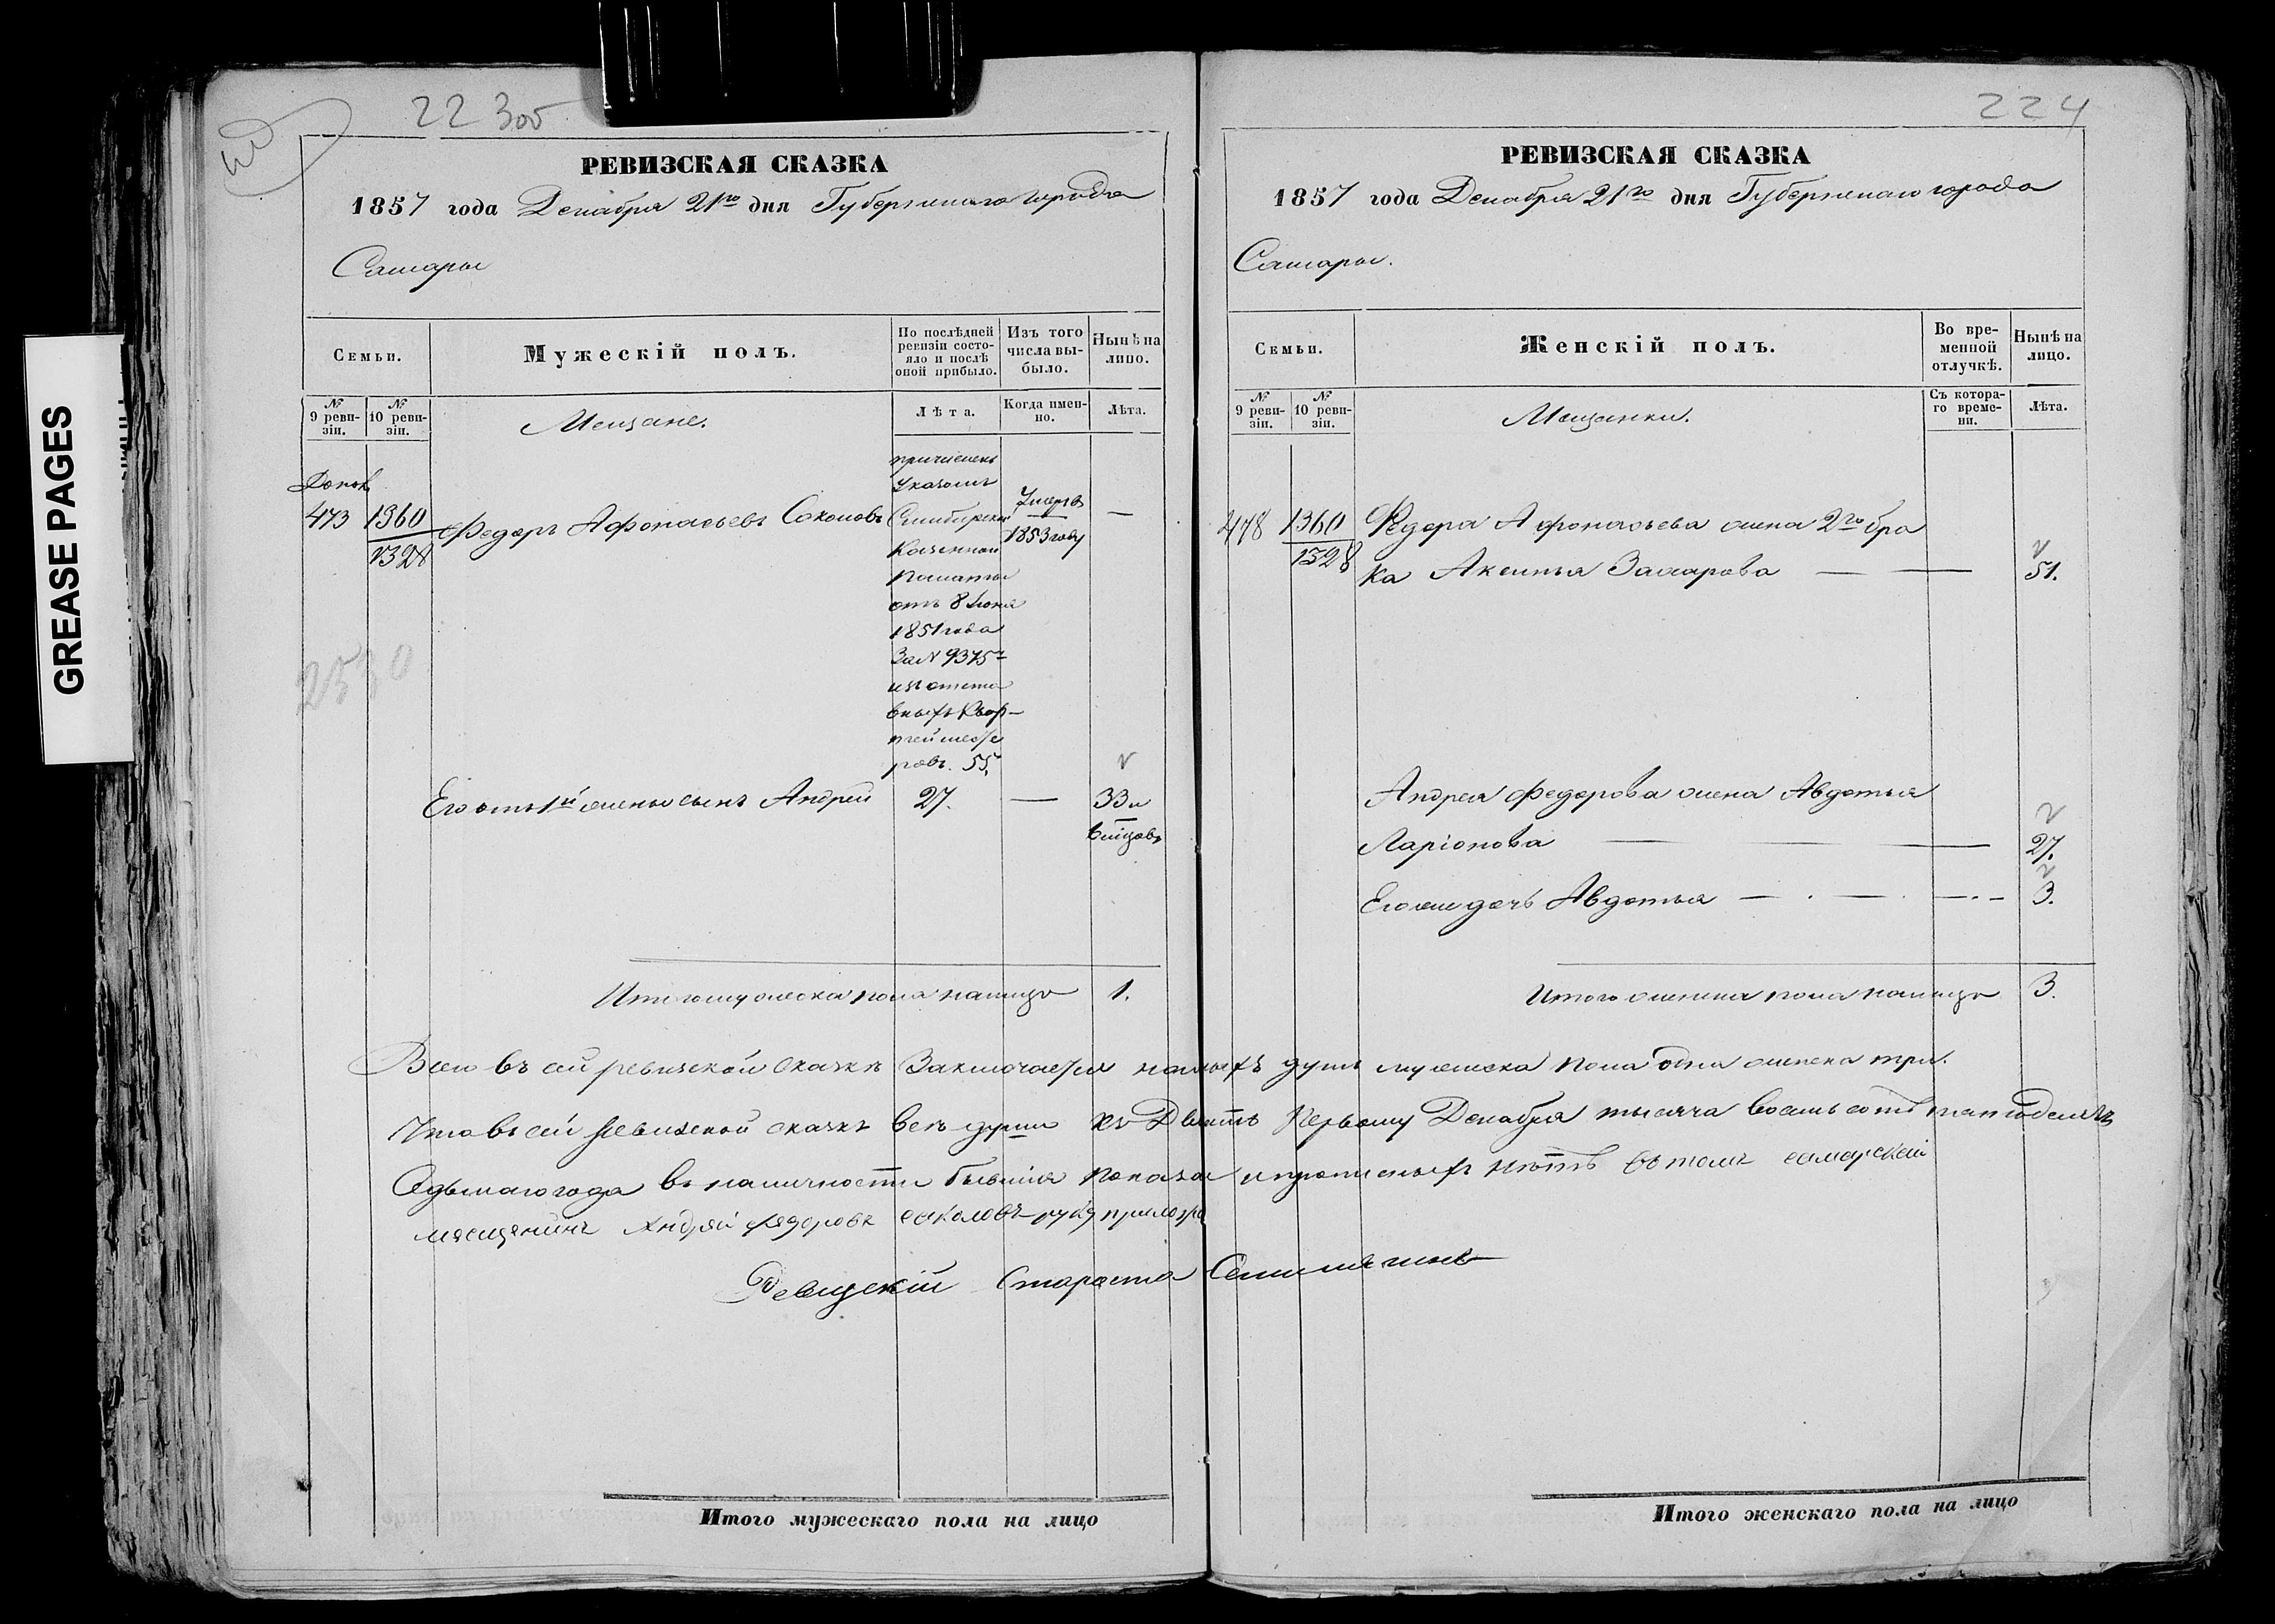 GREASE PAGES
223об
РЕВИЗСКАЯ СКАЗКА
1857 года Декабря 21го дня Губернскаго города
Самары
Семьи.
Мужескій полъ.
По послѣдней ревизіи состояло и послѣ оной прибыло.
Изъ того числа выбыло.
Нынѣ на лицо.
№ 9 ревизіи.
№ 10 ревизіи.
Мещане.
Лѣта.
Когда именно.
Лѣта.
473
1360
1328
Федоръ Афонасьевъ Соколовъ
причисленъ
Указомъ
Симбирской
Казенной
палаты
отъ 8 Іюня
1851 года
За № 9375
изъ отста
вныхъ Квар-
тейместе
ровъ. 55.
Умеръ въ
1853 году
—
2530
Его отъ 1й жены сынъ Андрей
27.
—
33 и
Итого мужеска пола налицо
1.
224
РЕВИЗСКАЯ СКАЗКА
1857 года Декабря 21го дня Губернскаго города
Самары.
Семьи.
Женскій полъ.
Во временной отлучкѣ.
Нынѣ на лицо.
№ 9 ревизіи.
№ 10 ревизіи.
Мещанки.
Съ котораго времени.
Лѣта.
478
1360
1328
Федора Афонасьева жена 2го бра
ка Аксинья Захарова —
51.
Андрея Федорова жена Авдотья
Ларіонова
27.
Его же дочь Авдотья —
3.
Итого женска пола налицо
3.
Всего въ сей ревизской сказкѣ Заключается налицо душъ мужеска пола одна женска три.
Что въ сей ревизской сказкѣ все души къ Двадцать Первому Декабря тысяча восемь сотъ пятьдесятъ
Седьмаго года въ наличности бывшія показаны и прописныхъ нѣтъ въ томъ самарской
мещанинъ Андрей Федоровъ соколовъ руку приложилъ
Староста
Итого мужескаго пола на лицо
Итого женскаго пола на лицо